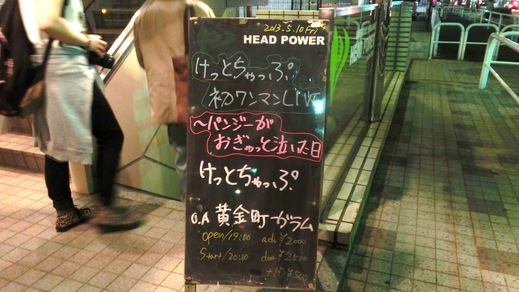 2013.5.10 Fri
HEAD POWER
けっとちゃっぷ
初ワンマンLIVE
〜パンジーが
おぎゅっと泣いた日
けっとちゃっぷ
O.A 黄金町ガラム
open/19:00 adv ¥2000
Start/20:00 door ¥2500
+1D ¥500
HEAD POWER